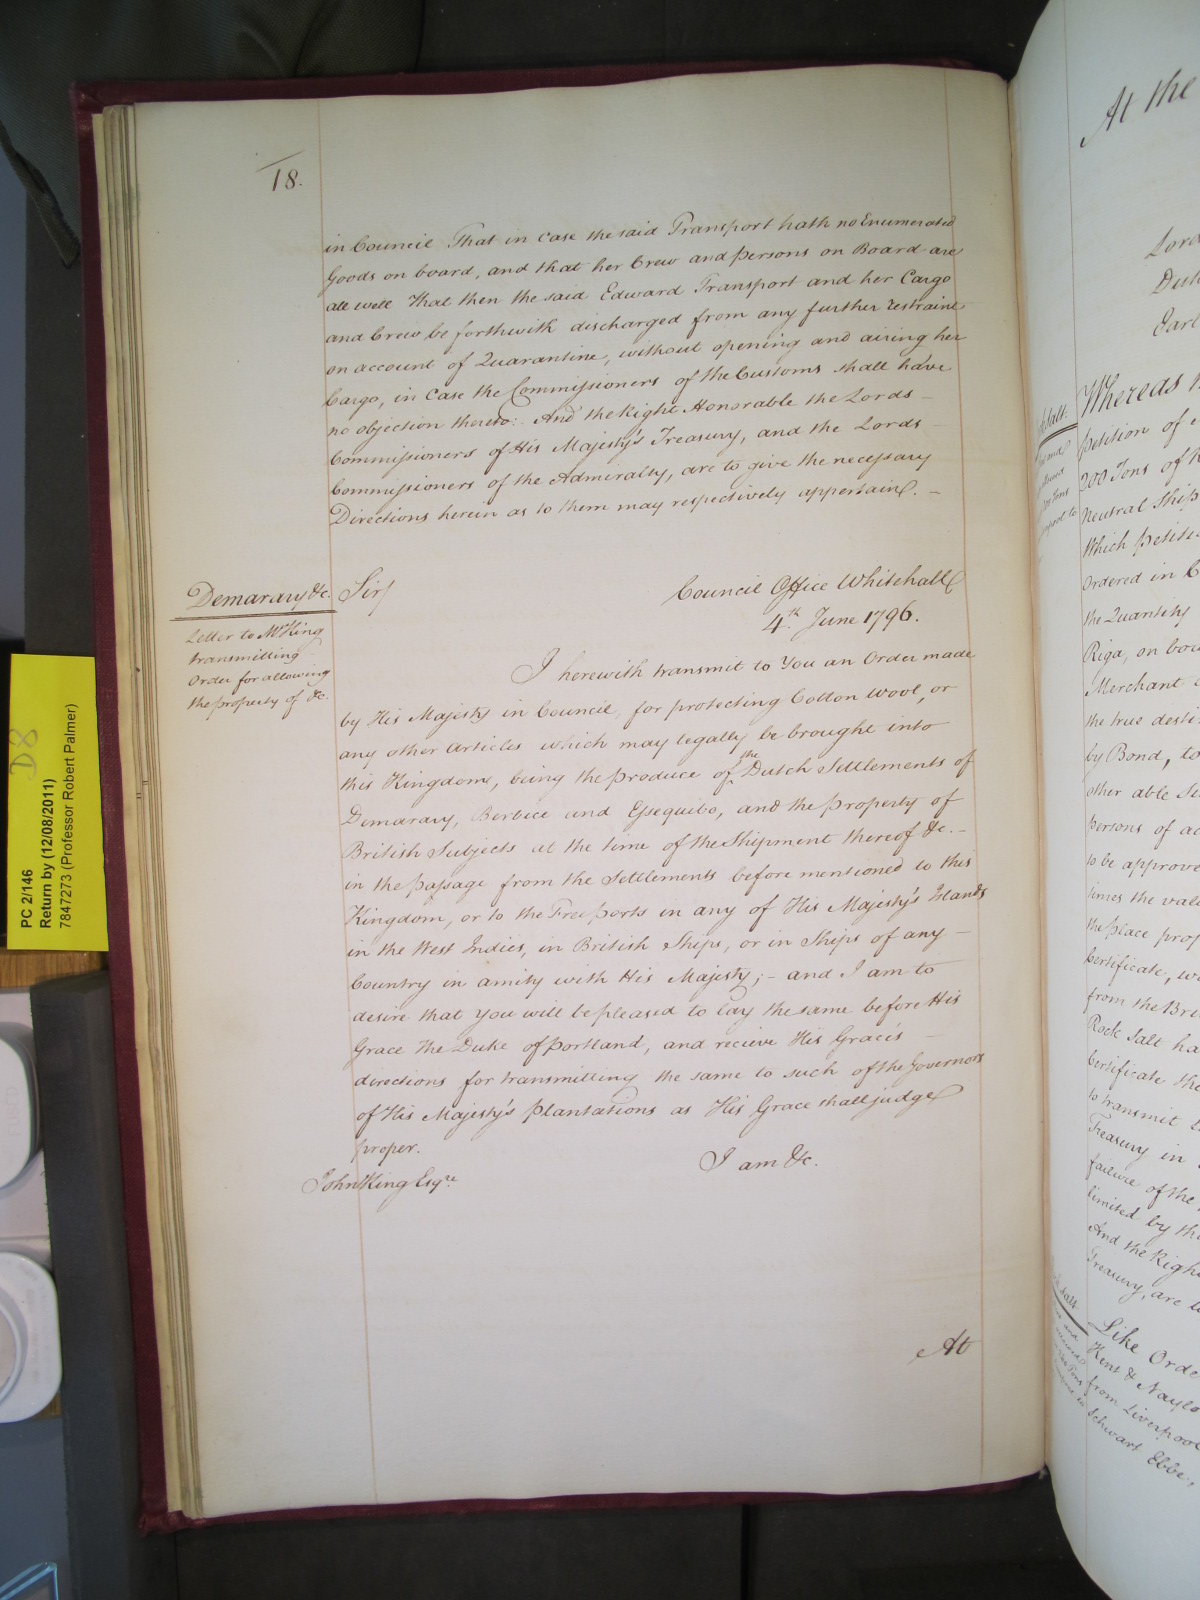 18.
in Council That in Case the said Transport hath no Enumerated
Goods on board, and that her Crew and persons on Board are
all well That then the said Edward Transport and her Cargo
and Crew be forthwith discharged from any further restraint
on account of Quarantine, without opening and airing her
Cargo, in Case the Commissioners of the Customs shall have
no objection thereto: And the Right Honorable the Lords
Commissioners of His Majesty's Treasury, and the Lords
Commissioners of the Admiralty, are to give the necessary
Directions herein as to them may respectively appertain.
Demarary &c.
Letter to Mr King
transmitting
Order for allowing
the property of &c.
Sir/
Council Office Whitehall
4th June 1796.
I herewith transmit to You an Order made
by His Majesty in Council, for protecting Cotton Wool, or
any other Articles which may legally be brought into
this Kingdom, being the produce of the Dutch Settlements of
Demarary, Berbice and Essequibo, and the property of
British Subjects at the time of the Shipment thereof &c.-
in the passage from the Settlements before mentioned to this
Kingdom, or to the Free ports in any of His Majesty's Islands
in the West Indies, in British Ships, or in Ships of any
Country in amity with His Majesty;- and I am to
desire that You will be pleased to lay the same before His
Grace the Duke of Portland, and recieve His Grace's
directions for transmitting the same to such of the Governors
of His Majesty's plantations as His Grace shall judge
proper.
I am &c.
John King Esqre
At
PC 2/146
Return by (12/08/2011)
7847273 (Professor Robert Palmer)
D8
At the
Lord
Duk
Earl
Whereas
petition of
200 Tons of
Neutral Ship
Which petiti
Ordered in C
the Quantity
Riga, on boa
Merchant
the true desti
by Bond, to
other able
persons of
to be approve
times the val
the place prop
Certificate,
from the Bri
Rock Salt ha
Certificate the
to transmit
Treasury in
failure of the
limited by th
And the Righ
Treasury, are
Like Orde
Kent & Naylo
from Liverpool
Schwart Ebbe,